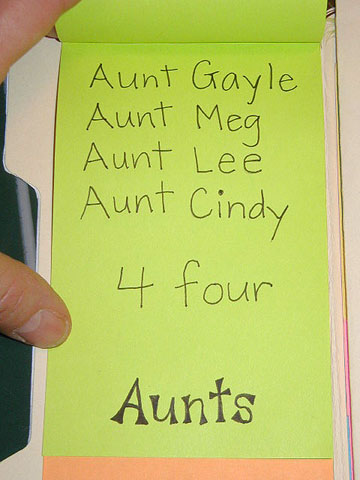 Aunt Gayle
Aunt Meg
Aunt Lee
Aunt Cindy
4 four
Aunts